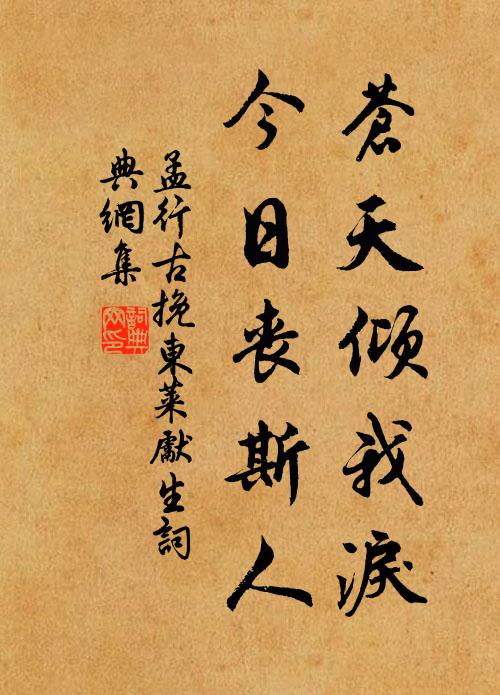 蒼天傾我淚
今日喪斯人
孟行古挽東萊獻生詞
典網集
詞典網印